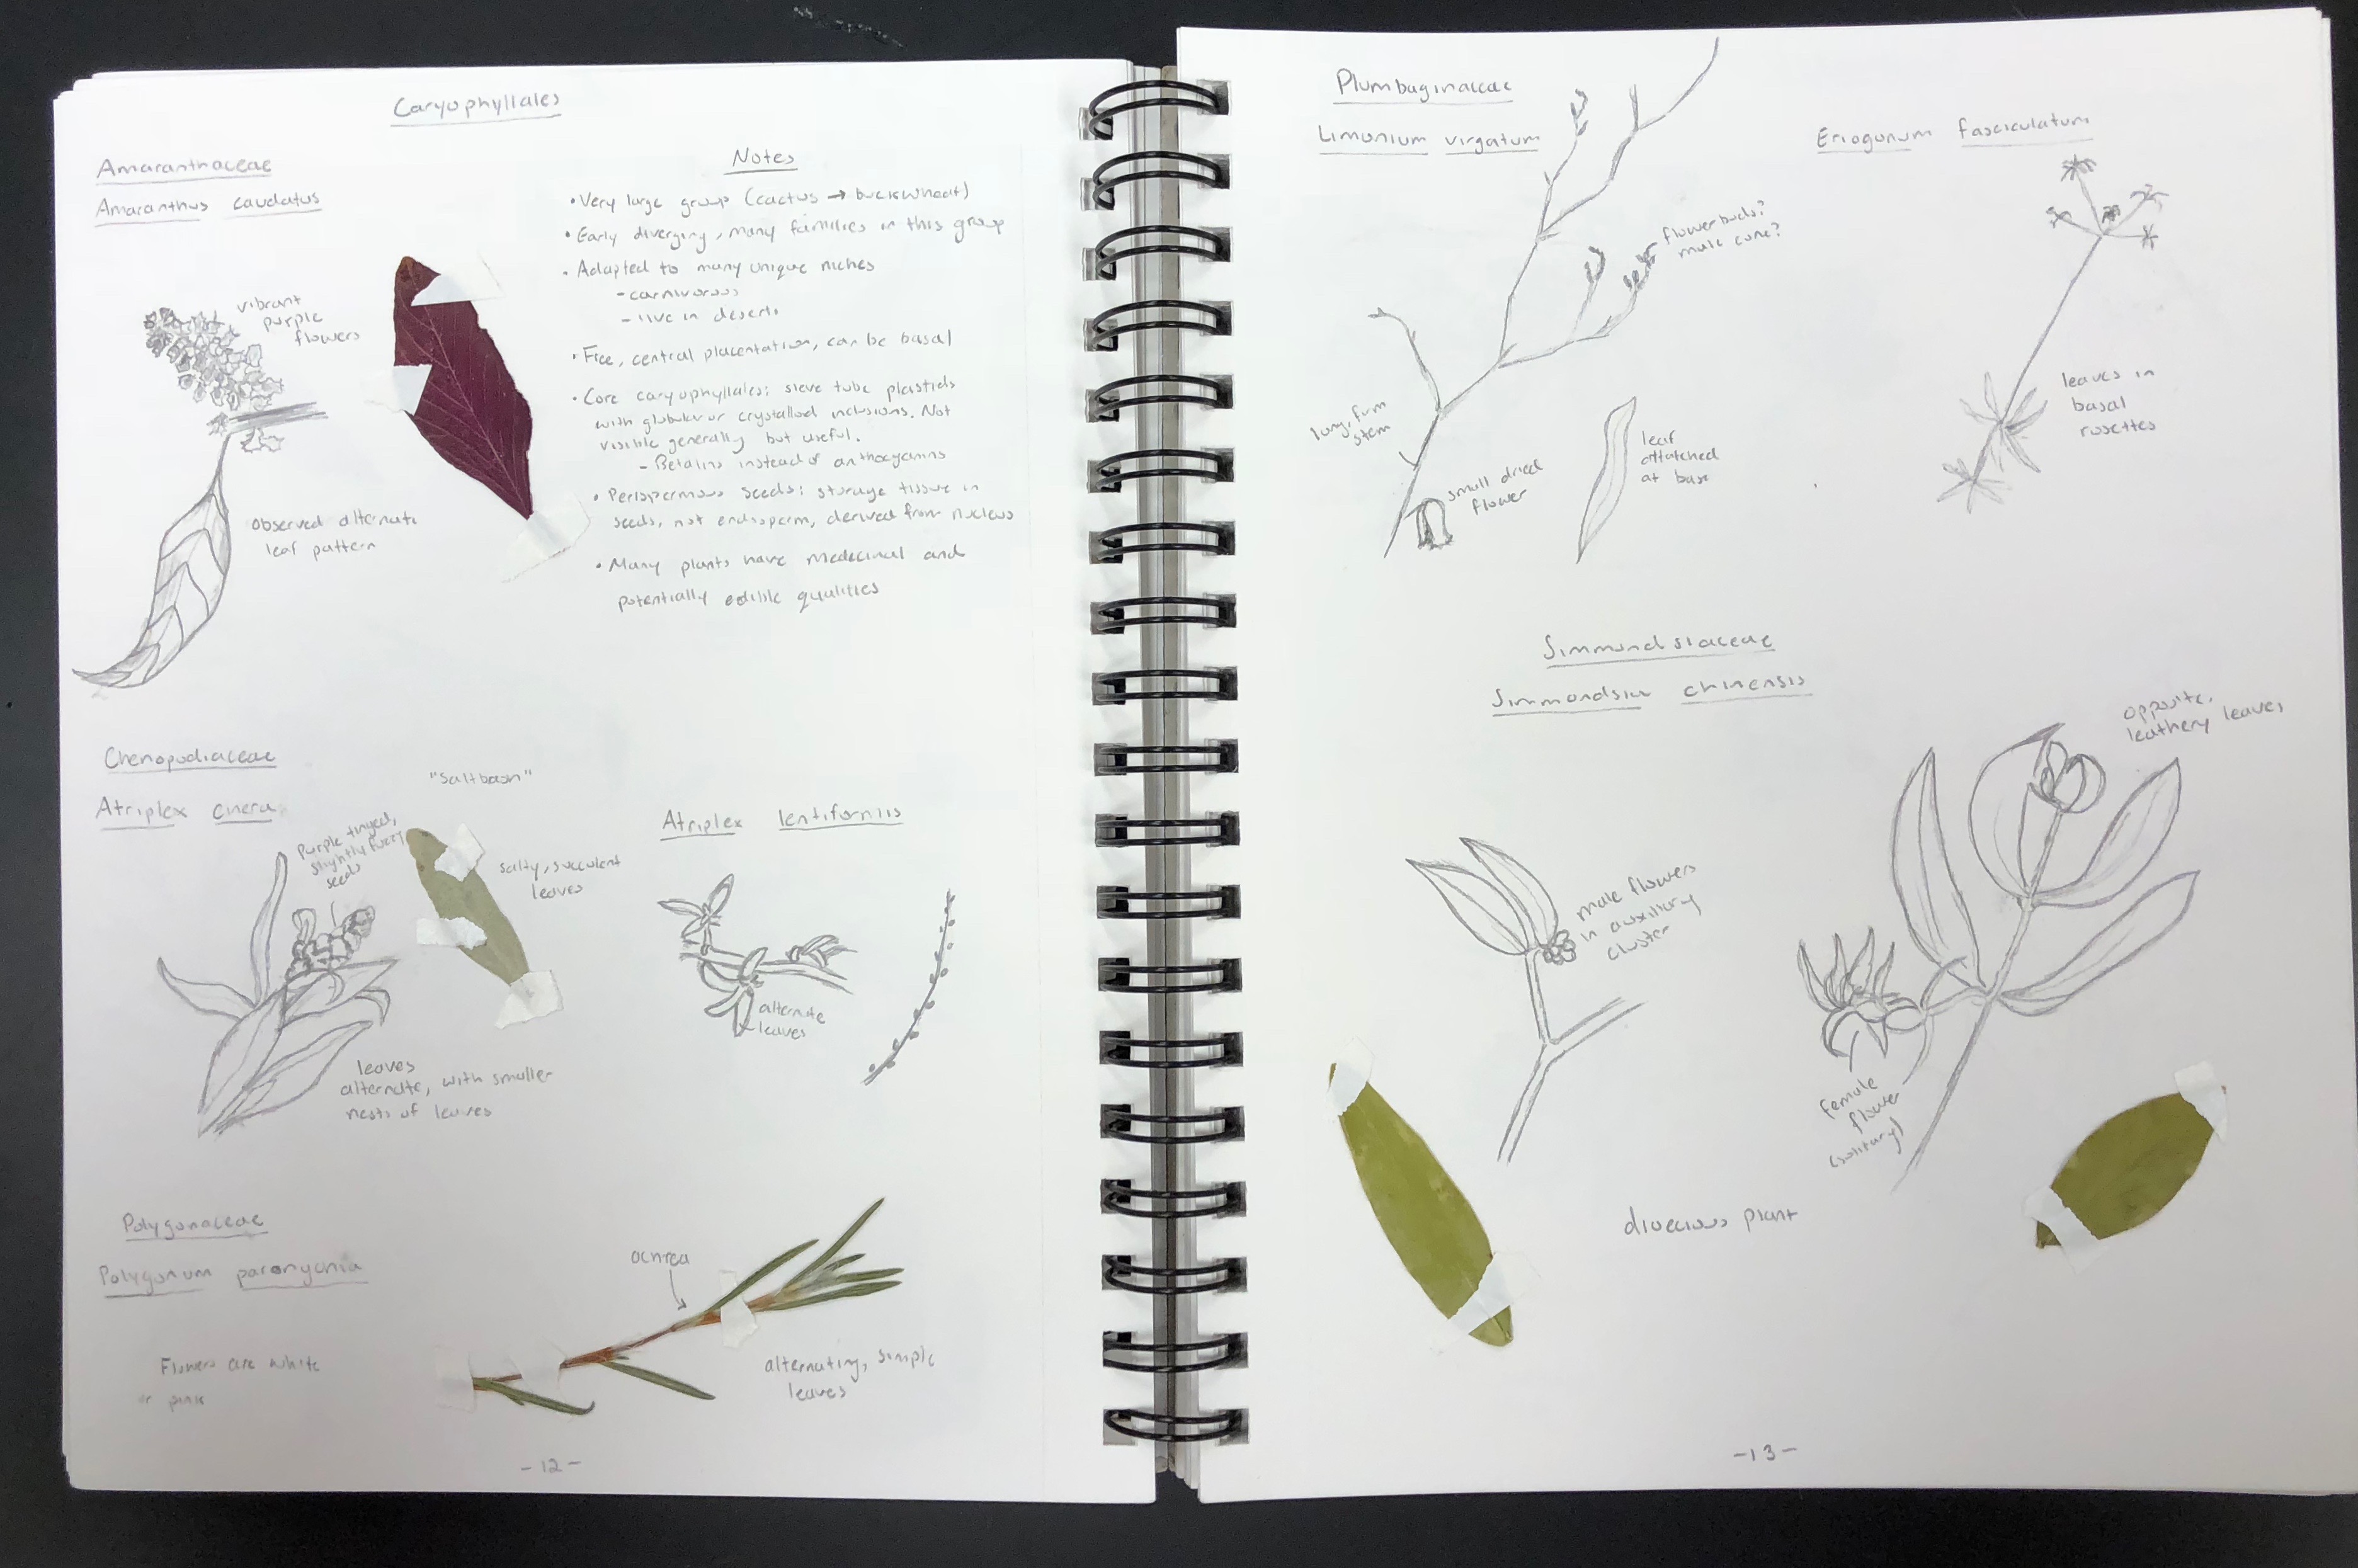 Caryophyllales
Amaranthaceae
Amaranthus caudatus
vibrant
purple
flowers
Observed alternate
leaf pattern
Notes
• Very large group (cactus → buckwheat)
• Early diverging, many families in this group
• Adapted to many unique niches
- carnivorous
- live in deserts
• Free, central placentation, can be basal
• Core caryophyllales: sieve tube plastids
with globular or crystalloid inclusions. Not
visible generally but useful.
- Betalins instead of anthocyanins
• Perispermous seeds: storage tissue in
seeds, not endosperm, derived from nucleus
• Many plants have medecinal and
potentially edible qualities
Chenopodiaceae
Atriplex cinera
"Saltbush"
Purple tinged,
slightly fuzzy
seeds
salty, succulent
leaves
leaves
alternate, with smaller
nests of leaves
Atriplex lentiformis
alternate
leaves
Polygonaceae
Polygonum paronychia
Flowers are white
or pink
ochrea
alternating, simple
leaves
- 12 -
Plumbaginaceae
Limonium virgatum
flower buds?
male cone?
long, firm
stem
small dried
flower
leaf
attatched
at base
Eriogonum fasciculatum
leaves in
basal
rosettes
Simmondsiaceae
Simmondsia chinensis
male flowers
in auxillary
cluster
opposite,
leathery leaves
female
flower
(solitary)
dioecious plant
- 13 -